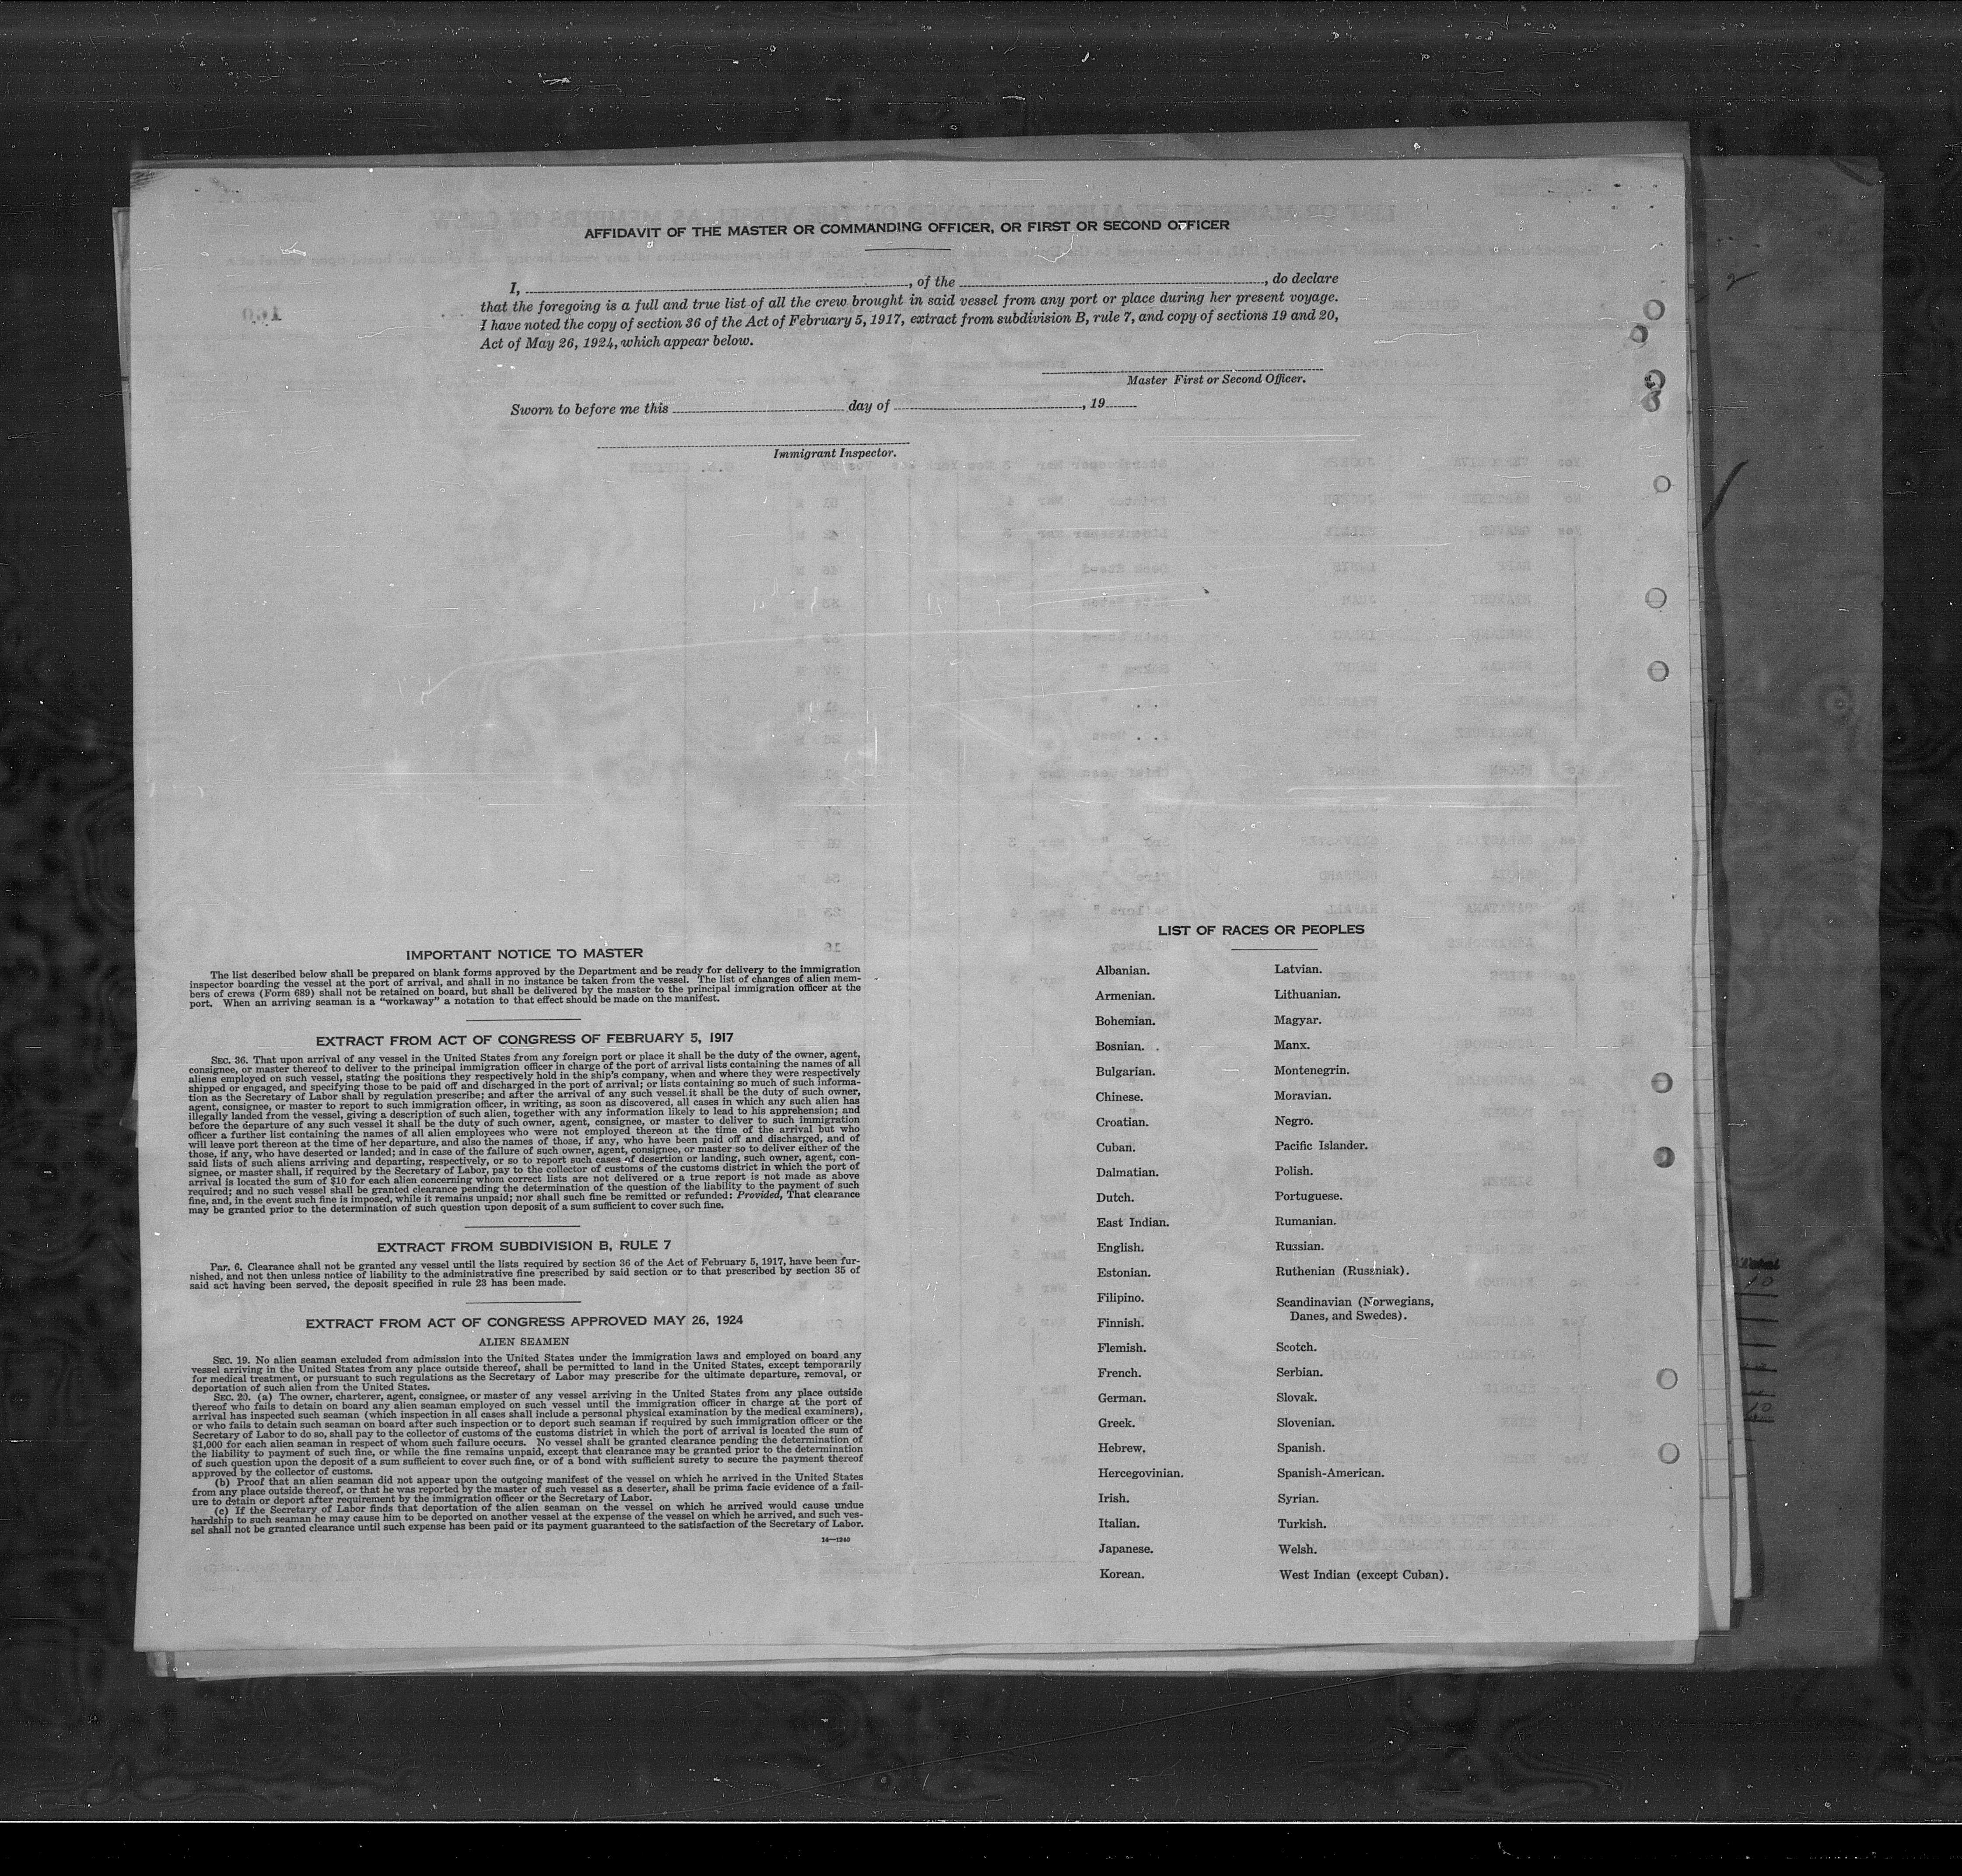 AFFIDAVIT OF THE MASTER OR COMMANDING OFFICER, OR FIRST OR SECOND OFFICER
I, , of the , do declare
that the foregoing is a full and true list of all the crew brought in said vessel from any port or place during her present voyage.
I have noted the copy of section 36 of the Act of February 5, 1917, extract from subdivision B, rule 7, and copy of sections 19 and 20,
Act of May 26, 1924, which appear below.
Master First or Second Officer.
Sworn to before me this day of , 19
Immigrant Inspector.
IMPORTANT NOTICE TO MASTER
The list described below shall be prepared on blank forms approved by the Department and be ready for delivery to the immigration
inspector boarding the vessel at the port of arrival, and shall in no instance be taken from the vessel. The list of changes of alien mem-
bers of crews (Form 689) shall not be retained on board, but shall be delivered by the master to the principal immigration officer at the
port. When an arriving seaman is a "workaway" a notation to that effect should be made on the manifest.
EXTRACT FROM ACT OF CONGRESS OF FEBRUARY 5, 1917
SEC. 36. That upon arrival of any vessel in the United States from any foreign port or place it shall be the duty of the owner, agent,
consignee, or master thereof to deliver to the principal immigration officer in charge of the port of arrival lists containing the names of all
aliens employed on such vessel, stating the positions they respectively hold in the ship's company, when and where they were respectively
shipped or engaged, and specifying those to be paid off and discharged in the port of arrival; or lists containing so much of such informa-
tion as the Secretary of Labor shall by regulation prescribe; and after the arrival of any such vessel it shall be the duty of such owner,
agent, consignee, or master to report to such immigration officer, in writing, as soon as discovered, all cases in which any such alien has
illegally landed from the vessel, giving a description of such alien, together with any information likely to lead to his apprehension; and
before the departure of any such vessel it shall be the duty of such owner, agent, consignee, or master to deliver to such immigration
officer a further list containing the names of all alien employees who were not employed thereon at the time of the arrival but who
will leave port thereon at the time of her departure, and also the names of those, if any, who have been paid off and discharged, and of
those, if any, who have deserted or landed; and in case of the failure of such owner, agent, consignee, or master so to deliver either of the
said lists of such aliens arriving and departing, respectively, or so to report such cases of desertion or landing, such owner, agent, con-
signee, or master shall, if required by the Secretary of Labor, pay to the collector of customs of the customs district in which the port of
arrival is located the sum of $10 for each alien concerning whom correct lists are not delivered or a true report is not made as above
required; and no such vessel shall be granted clearance pending the determination of the question of the liability to the payment of such
fine, and, in the event such fine is imposed, while it remains unpaid; nor shall such fine be remitted or refunded: Provided, That clearance
may be granted prior to the determination of such question upon deposit of a sum sufficient to cover such fine.
EXTRACT FROM SUBDIVISION B, RULE 7
PAR. 6. Clearance shall not be granted any vessel until the lists required by section 36 of the Act of February 5, 1917, have been fur-
nished, and not then unless notice of liability to the administrative fine prescribed by said section or to that prescribed by section 35 of
said act having been served, the deposit specified in rule 23 has been made.
EXTRACT FROM ACT OF CONGRESS APPROVED MAY 26, 1924
ALIEN SEAMEN
SEC. 19. No alien seaman excluded from admission into the United States under the immigration laws and employed on board any
vessel arriving in the United States from any place outside thereof, shall be permitted to land in the United States, except temporarily
for medical treatment, or pursuant to such regulations as the Secretary of Labor may prescribe for the ultimate departure, removal, or
deportation of such alien from the United States.
SEC. 20. (a) The owner, charterer, agent, consignee, or master of any vessel arriving in the United States from any place outside
thereof who fails to detain on board any alien seaman employed on such vessel until the immigration officer in charge at the port of
arrival has inspected such seaman (which inspection in all cases shall include a personal physical examination by the medical examiners),
or who fails to detain such seaman on board after such inspection or to deport such seaman if required by such immigration officer or the
Secretary of Labor to do so, shall pay to the collector of customs of the customs district in which the port of arrival is located the sum of
$1,000 for each alien seaman in respect of whom such failure occurs. No vessel shall be granted clearance pending the determination of
the liability to payment of such fine, or while the fine remains unpaid, except that clearance may be granted prior to the determination
of such question upon the deposit of a sum sufficient to cover such fine, or of a bond with sufficient surety to secure the payment thereof
approved by the collector of customs.
(b) Proof that an alien seaman did not appear upon the outgoing manifest of the vessel on which he arrived in the United States
from any place outside thereof, or that he was reported by the master of such vessel as a deserter, shall be prima facie evidence of a fail-
ure to detain or deport after requirement by the immigration officer or the Secretary of Labor.
(c) If the Secretary of Labor finds that deportation of the alien seaman on the vessel on which he arrived would cause undue
hardship to such seaman he may cause him to be deported on another vessel at the expense of the vessel on which he arrived, and such ves-
sel shall not be granted clearance until such expense has been paid or its payment guaranteed to the satisfaction of the Secretary of Labor.
14—1240
LIST OF RACES OR PEOPLES
Albanian.
Armenian.
Bohemian.
Bosnian.
Bulgarian.
Chinese.
Croatian.
Cuban.
Dalmatian.
Dutch.
East Indian.
English.
Estonian.
Filipino.
Finnish.
Flemish.
French.
German.
Greek.
Hebrew.
Hercegovinian.
Irish.
Italian.
Japanese.
Korean.
Latvian.
Lithuanian.
Magyar.
Manx.
Montenegrin.
Moravian.
Negro.
Pacific Islander.
Polish.
Portuguese.
Rumanian.
Russian.
Ruthenian (Russniak).
Scandinavian (Norwegians,
Danes, and Swedes).
Scotch.
Serbian.
Slovak.
Slovenian.
Spanish.
Spanish-American.
Syrian.
Turkish.
Welsh.
West Indian (except Cuban).
Total
10
10